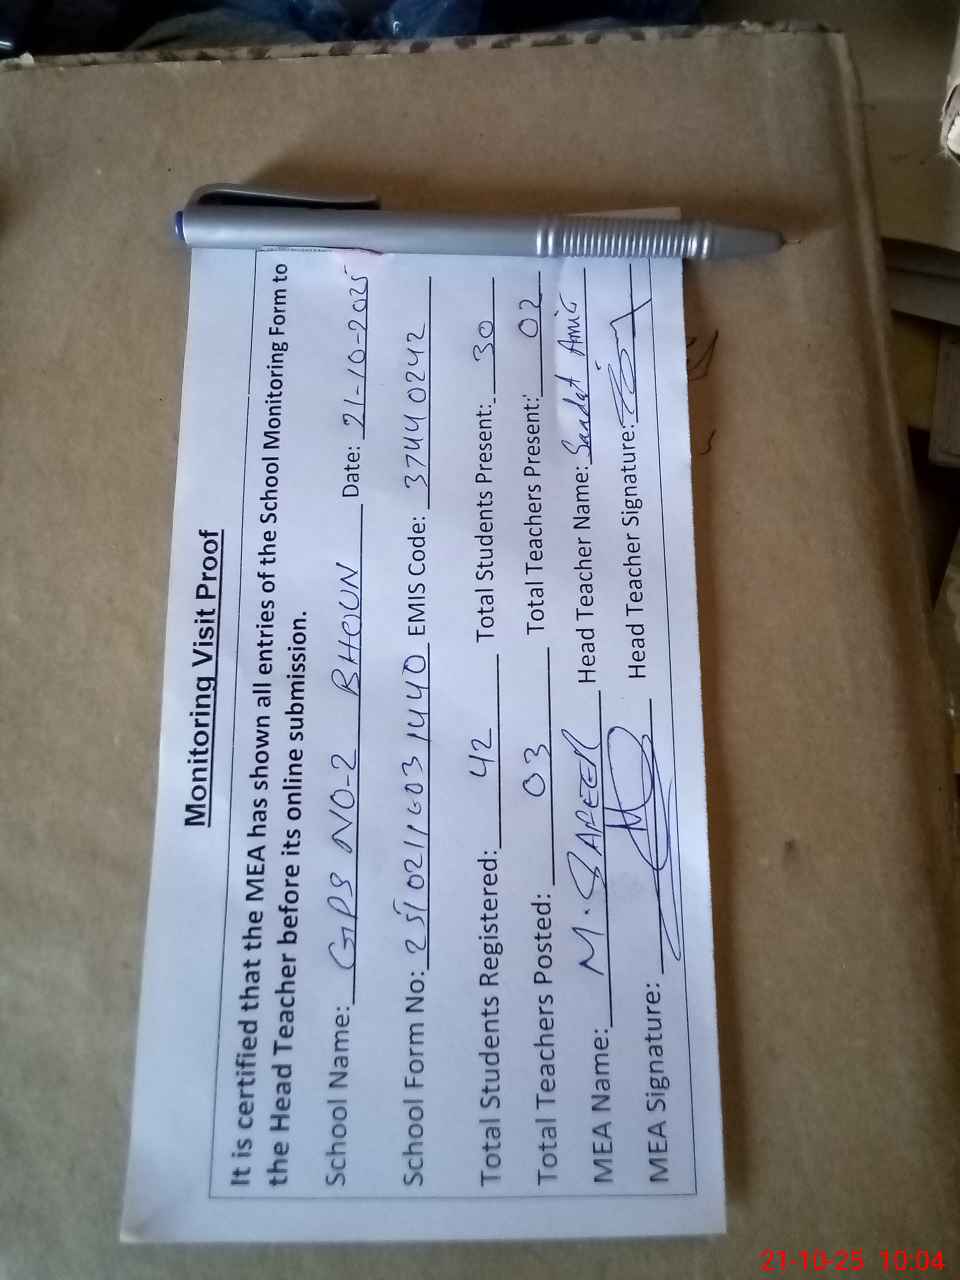 Monitoring Visit Proof
It is certified that the MEA has shown all entries of the School Monitoring Form to
the Head Teacher before its online submission.
School Name: GPS NO-2 BHOUN Date: 21-10-2025
School Form No: 2510211603 1440 EMIS Code: 37440242
Total Students Registered: 42 Total Students Present: 30
Total Teachers Posted: 03 Total Teachers Present: 02
MEA Name: M. SAFEER Head Teacher Name: Saadat Amir
MEA Signature: Head Teacher Signature:
21-10-25 10:04